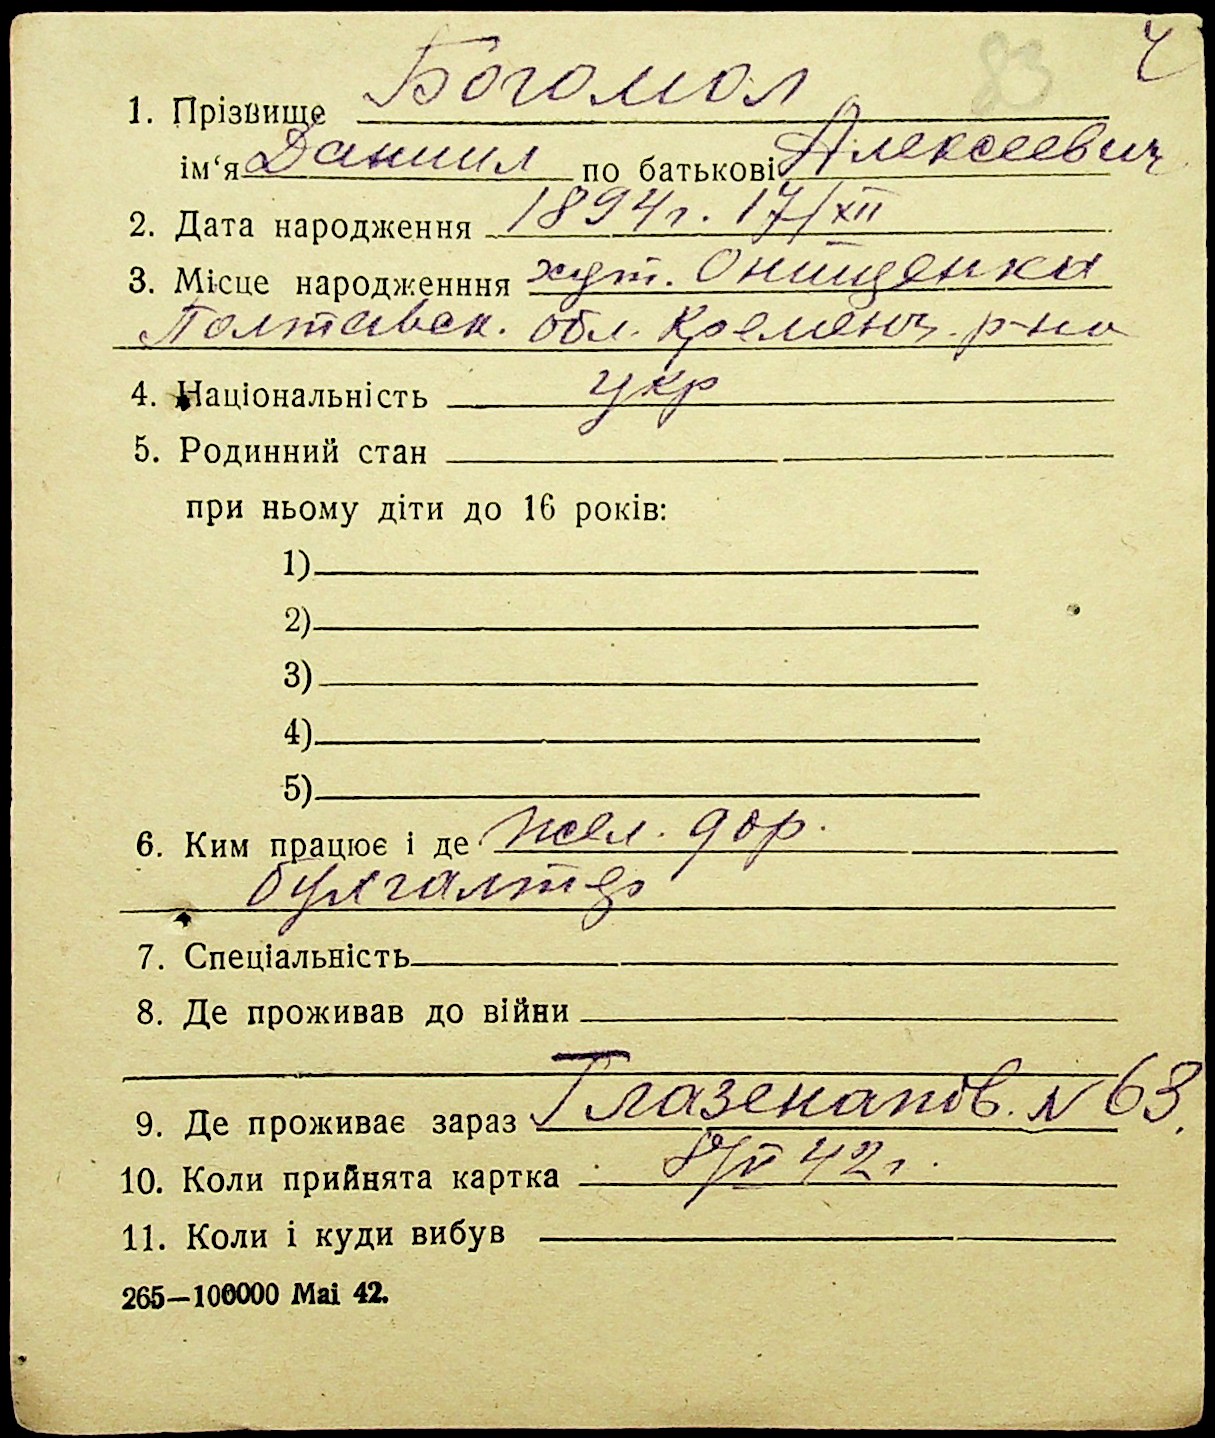 83 4
1. Прізвище Богомол
ім‘я Даниил по батькові Алексеевич
2. Дата народження 1894 г. 17/XII
3. Місце народженння хут. Онищенка
Полтавск. обл. Кременч. р-на
4. Національність укр
5. Родинний стан
при ньому діти до 16 років:
1)
2)
3)
4)
5)
6. Ким працює і де жел. дор.
бухгалтер
7. Спеціальність
8. Де проживав до війни
9. Де проживає зараз Глазенапов. № 63.
10. Коли прийнята картка 42 г.
11. Коли і куди вибув
265—100000 Mai 42.